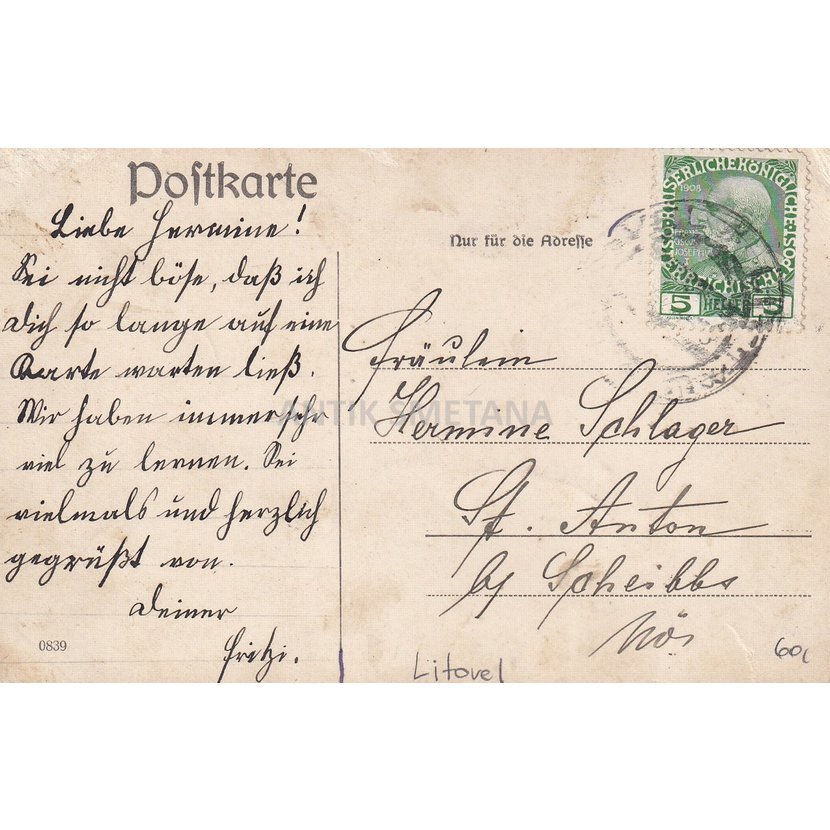 Postkarte
Liebe Hermine!
Sei nicht böse, daß ich
Dich so lange auf eine
Karte warten ließ.
Wir haben immer sehr
viel zu lernen. Sei
vielmals und herzlich
gegrüßt von.
Deiner
Fritzi.
0839
Nur für die Adresse
1908
KAISERLICHE KÖNIGLICHE
ÖSTERREICHISCHE
5 HELLER 5
ANTIK SMETANA
Fräulein
Hermine Schlager
St. Anton
b/ Scheibbs
Nös
Litovel
60,